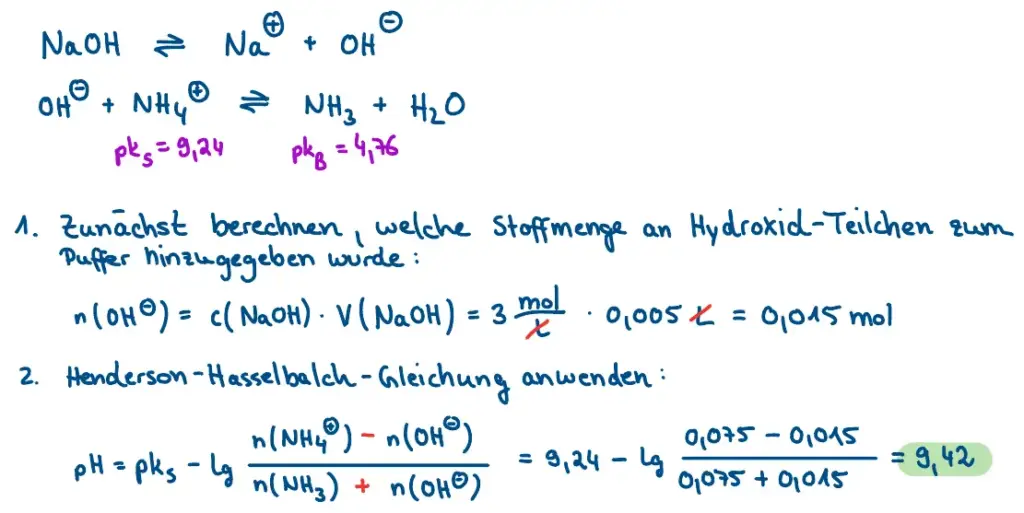 NaOH ⇌ Na⊕ + OH⊖
OH⊖ + NH₄⊕ ⇌ NH₃ + H₂O
pkₛ = 9,24 pk_B = 4,76
1. Zunächst berechnen, welche Stoffmenge an Hydroxid-Teilchen zum
Puffer hinzugegeben wurde:
n(OH⊖) = c(NaOH) · V(NaOH) = 3 mol/L · 0,005 L = 0,015 mol
2. Henderson-Hasselbalch-Gleichung anwenden:
pH = pkₛ - lg (n(NH₄⊕) - n(OH⊖))/(n(NH₃) + n(OH⊖)) = 9,24 - lg (0,075 - 0,015)/(0,075 + 0,015) = 9,42